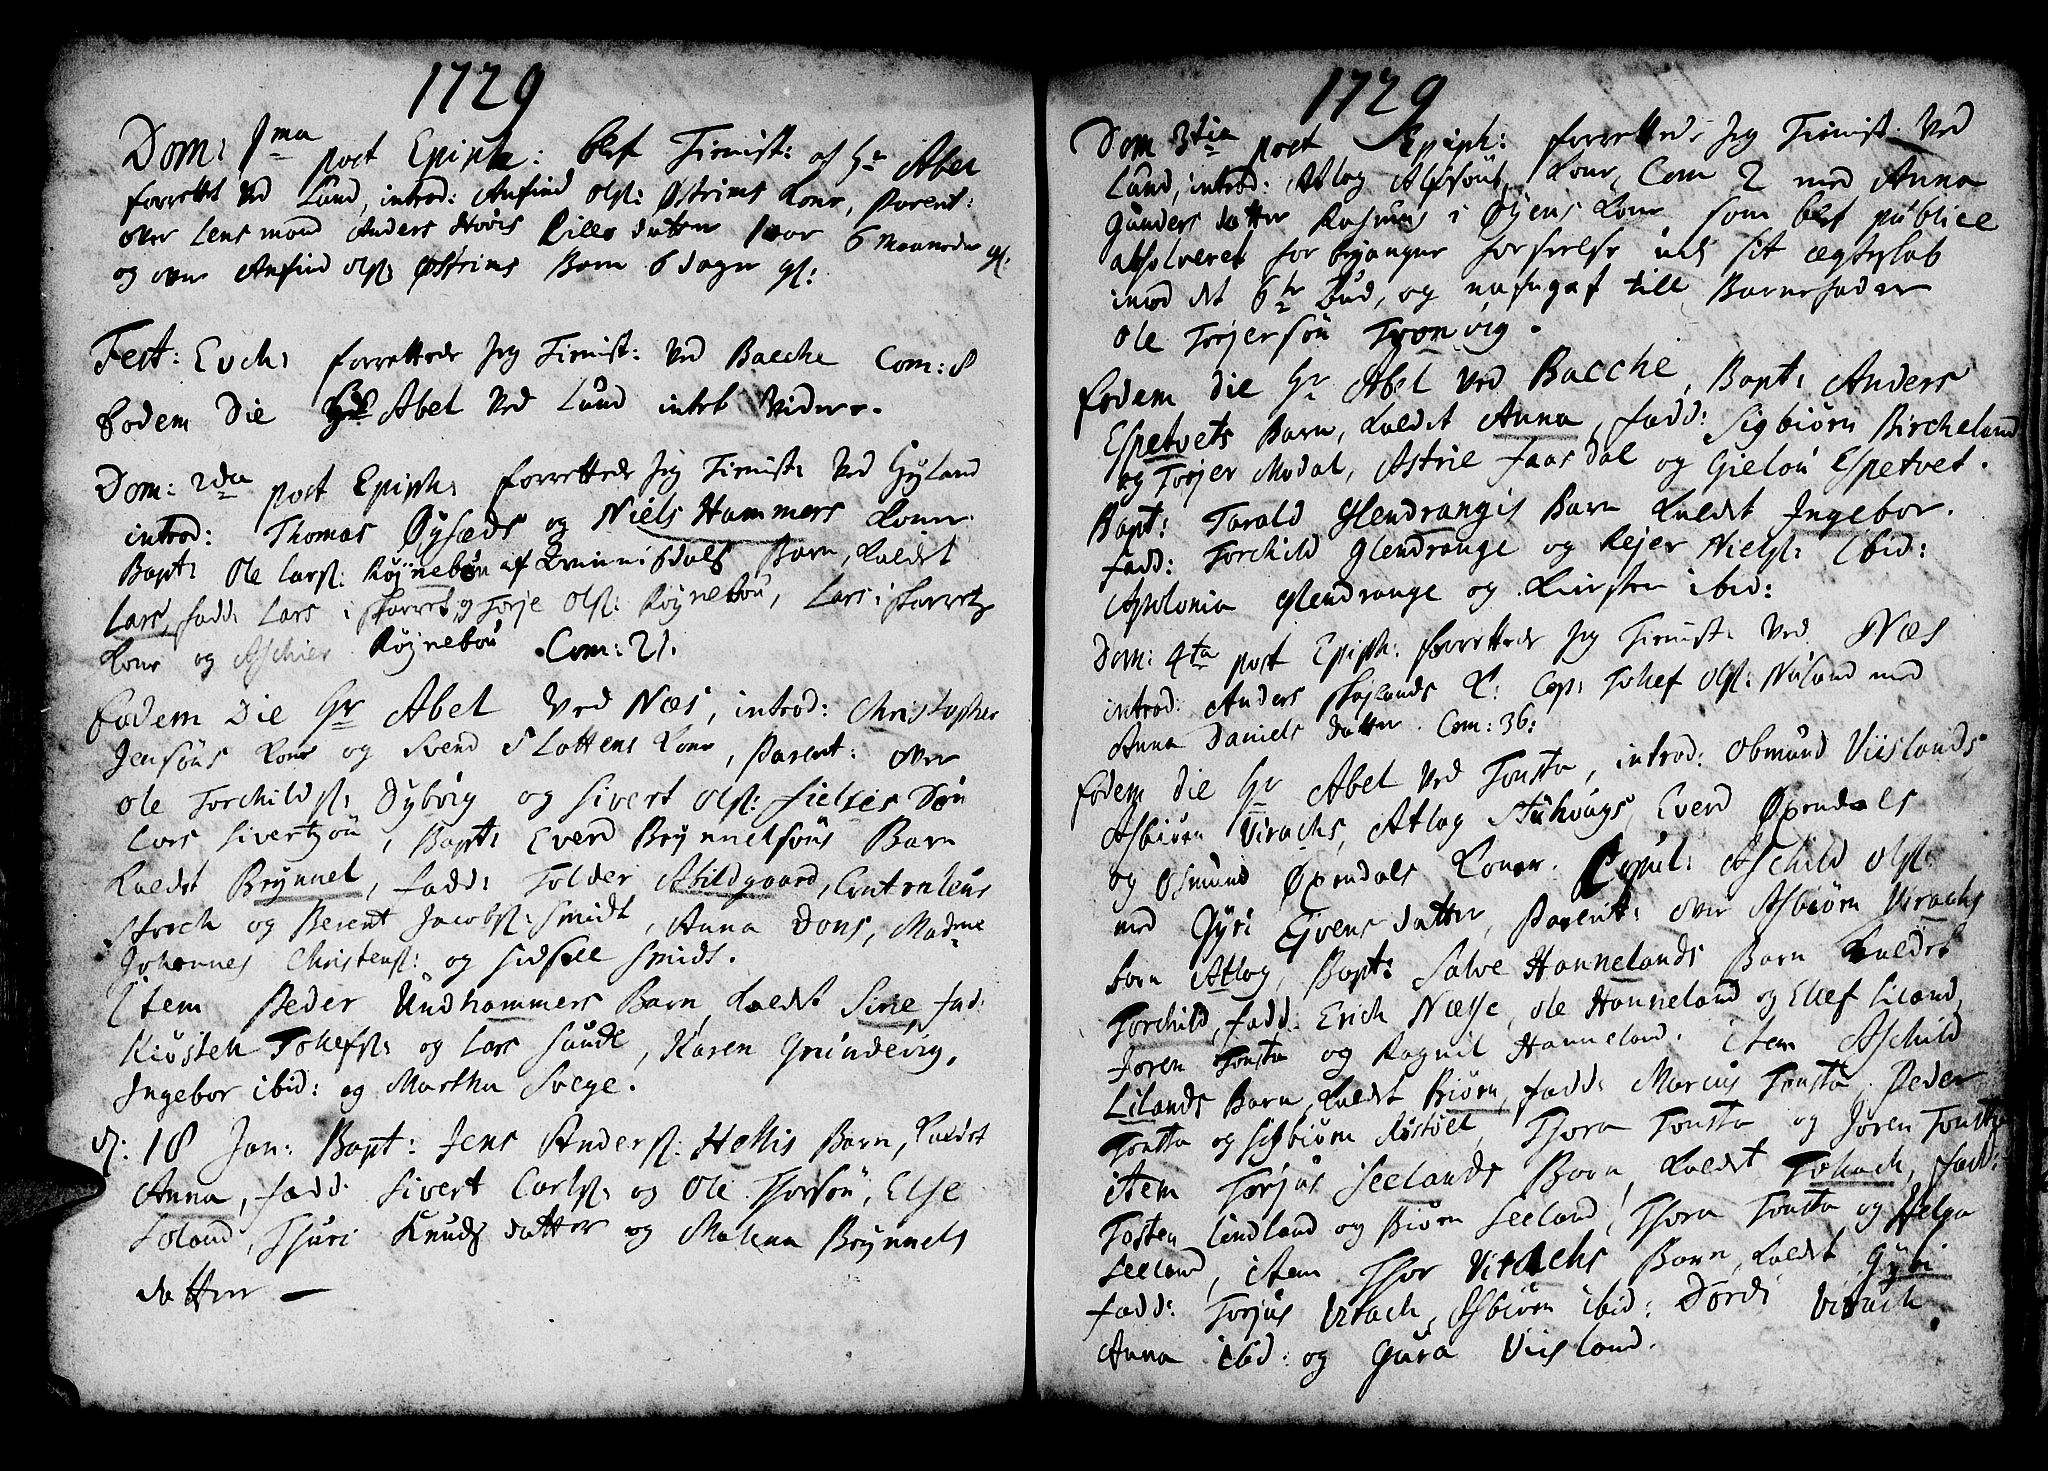 1729
Dom: 1ma post Epiph: blef Tienist: af Hr Abel
forrettet Ved Lund, introd: Anfind Olß: Østrims Kone, Parent:
over Lensmand Anders Hovis Lille datter 1 aar 6 Maaneder gl:
og over Anfind Olß: Østrims Barn 6 dager gl:
Fest: Evch: forrettede Jeg Tienist: Ved Bacche Com: 8
Eodem Die Hr Abel Ved Lund intet Videre.
Dom: 2da post Epiph: forrettede Jeg Tienist: Ved Gyland
introd: Thomas Øysæds og Niels Hammers Koner
Bapt: Ole Larß: Røynebøu af Qvinnisdals Barn, Kaldet
Lars, fadd: Lars i Skarret og Torje Olß: Røynebøu, Lars i Skarrets
Kone og Aschier Røynebou Com: 21.
Eodem Die Hr Abel Ved Næs, introd: Christopher
Jensøns Kone og Svend Slottens Kone, Parent: over
Ole Torchildß: Dybvig og Sivert Olß: Fielses Søn
Lars Sivertzøn, Bapt: Everd Brynnelsøns Barn
Kaldet Brynnel, fadd: Tolder Abildgaard, Controleur
Storch og Berent Jacobß: Smidt, Anna Dons, Madme
Johannes Christenß: og Sidsell Smids.
Item Peder Undhammers Barn Kaldet Sirie fad:
Kiøsten Tollefß: og Lars Sande, Karen Grundevig,
Ingebor ibid: og Martha Svege.
d: 18 Jan: Bapt: Jens Anderß: Hellis Barn, Kaldet
Anna, fadd: Sivert Carlß: og Ole Thorsøn, Else
Loland, Thuri Knuds datter og Malena Brynnels
datter —
1729
Dom 3tia post Epiph: forrettede Jeg Tienist: Ved
Lund, introd: Atlag Alfsøns Kone, Com 2 med Anna
Gunders datter Rasmus i Øyens Kone som blef publice
absolveret for begangne forseelse udi sit ægteskab
imod det 6te Bud, og udgaf till Barnefader
Ole Torjersøn Tronvig.
Eodem die Hr Abel Ved Bacche, Bapt: Anders
Espetvets Barn, Kaldet Anna, fadd: Sigbiørn Bircheland
og Torjer Modal, Astrie Faasdal og Gielou Espetvet.
Bapt: Tarald Glendrangis Barn Kaldet Ingebor.
fadd: Torchild Glendrange og Rejer Nielß: ibid:
Apolonia Glendrange og Kirsten ibid:
Dom: 4ta post Epiph: forrettede Jeg Tienist: Ved Næs
introd: Anders Skøylands K: Cop: Tollef Olß: Nuland med
Anna Daniels datter. Com: 36:
Eodem die Hr Abel Ved Tonsta, introd: Obmund Viislands
Asbiørn Virachs, Atlag Stuhougs, Everd Øxendals
og Osmund Øxendals Koner. Copul: Aschild Olß:
med Gyri Ejvens datter, Parent: over Asbiørn Virachs
barn Atlag, Bapt: Salve Hannelands Barn Kaldet
Torchild, fadd: Erich Næsse, Ole Hanneland og Ellef Liland,
Joren Tonsta og Ragnil Hanneland. item Aschild
Lilands Barn Kaldet Biørn, fadd: Marcus Tonsta, Peder
Tonsta og Sigbiørn Røstøel, Thora Tonsta og Joren Tonsta
item Torjus Seelands Barn Kaldet Tollach, fadd:
Tosten Lindland og Biørn Seeland, Thora Tonsta og Helga
Seeland, item Thor Virachs Barn, Kaldet Gyri
fadd: Torjus Virach, Asbiørn ibid: Dordi Virach.
Anna ibid: og Gura Viisland.